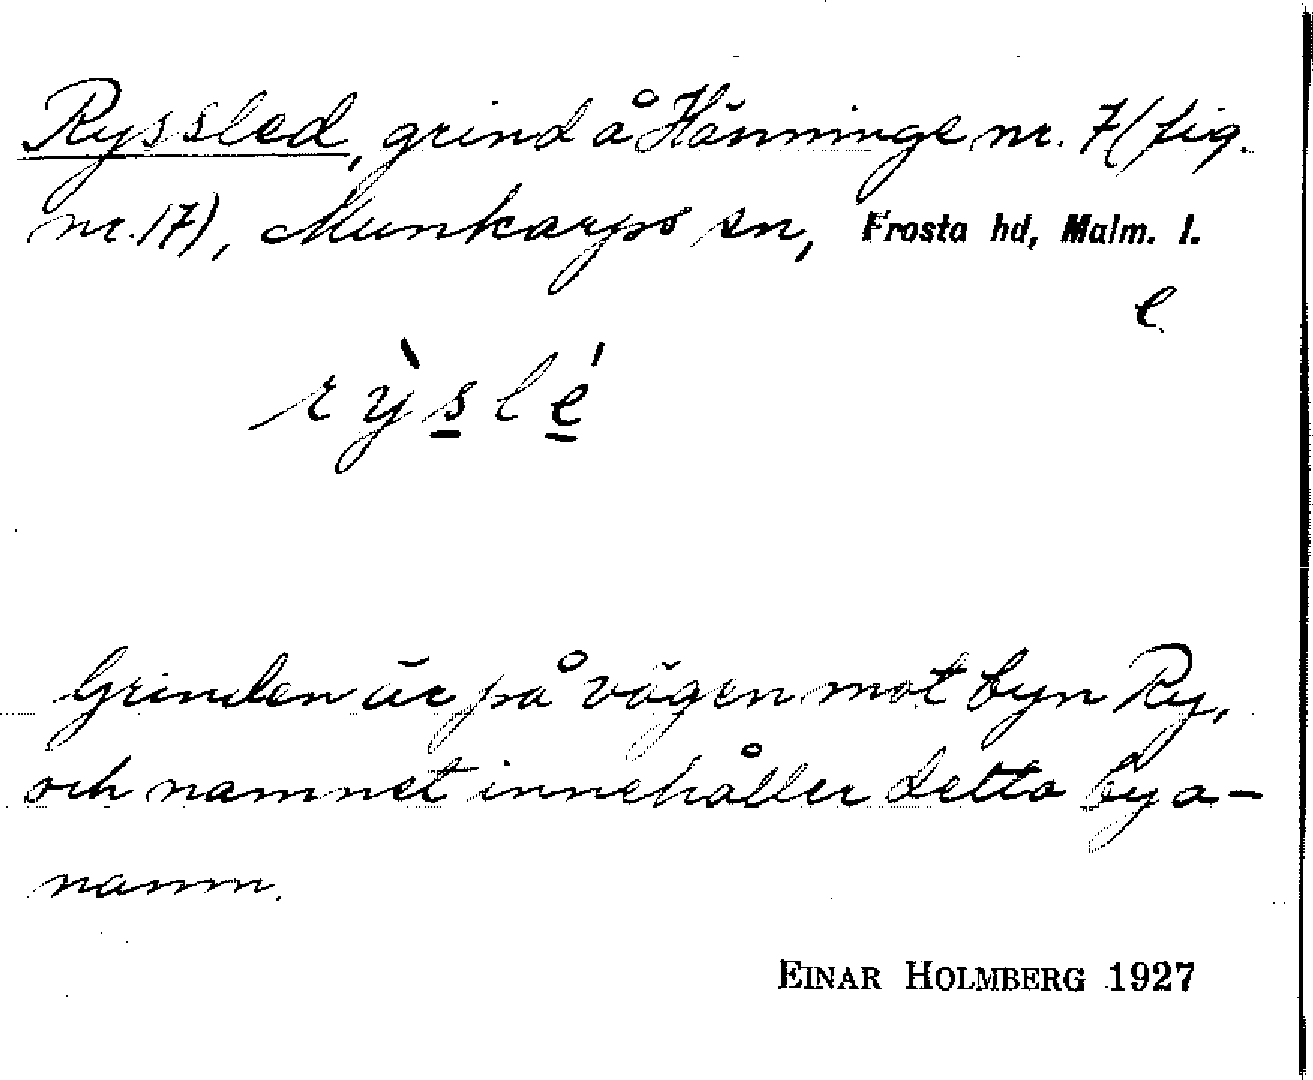 Ryssled, grind å Hänninge nr. 7 (fig.
nr. 17), Munkarps sn, Frosta hd, Malm. l.
e
rỳslé
Grinden är på vägen mot byn Ry,
och namnet innehåller detta bya-
namn.
EINAR HOLMBERG 1927